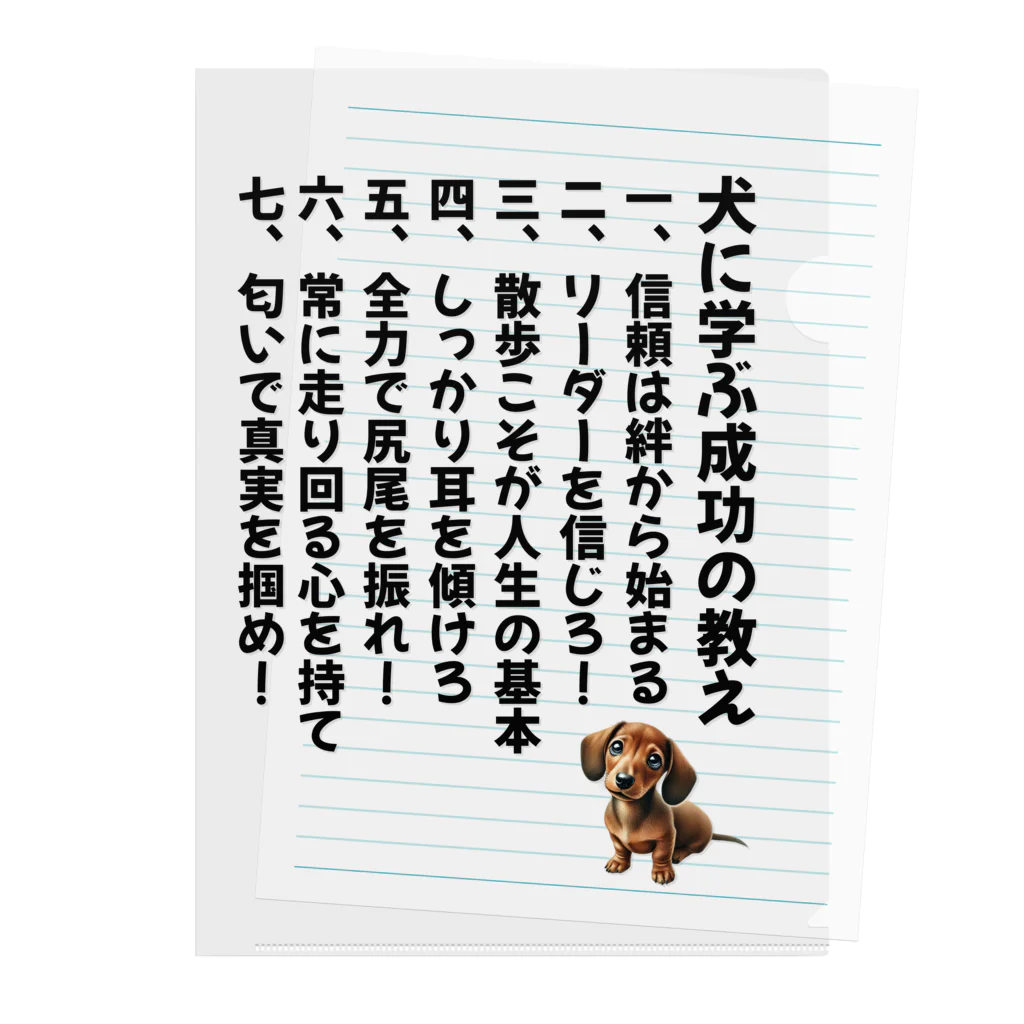 犬に学ぶ成功の教え
一、信頼は絆から始まる
二、リーダーを信じろ！
三、散歩こそが人生の基本
四、しっかり耳を傾けろ
五、全力で尻尾を振れ！
六、常に走り回る心を持て
七、匂いで真実を掴め！